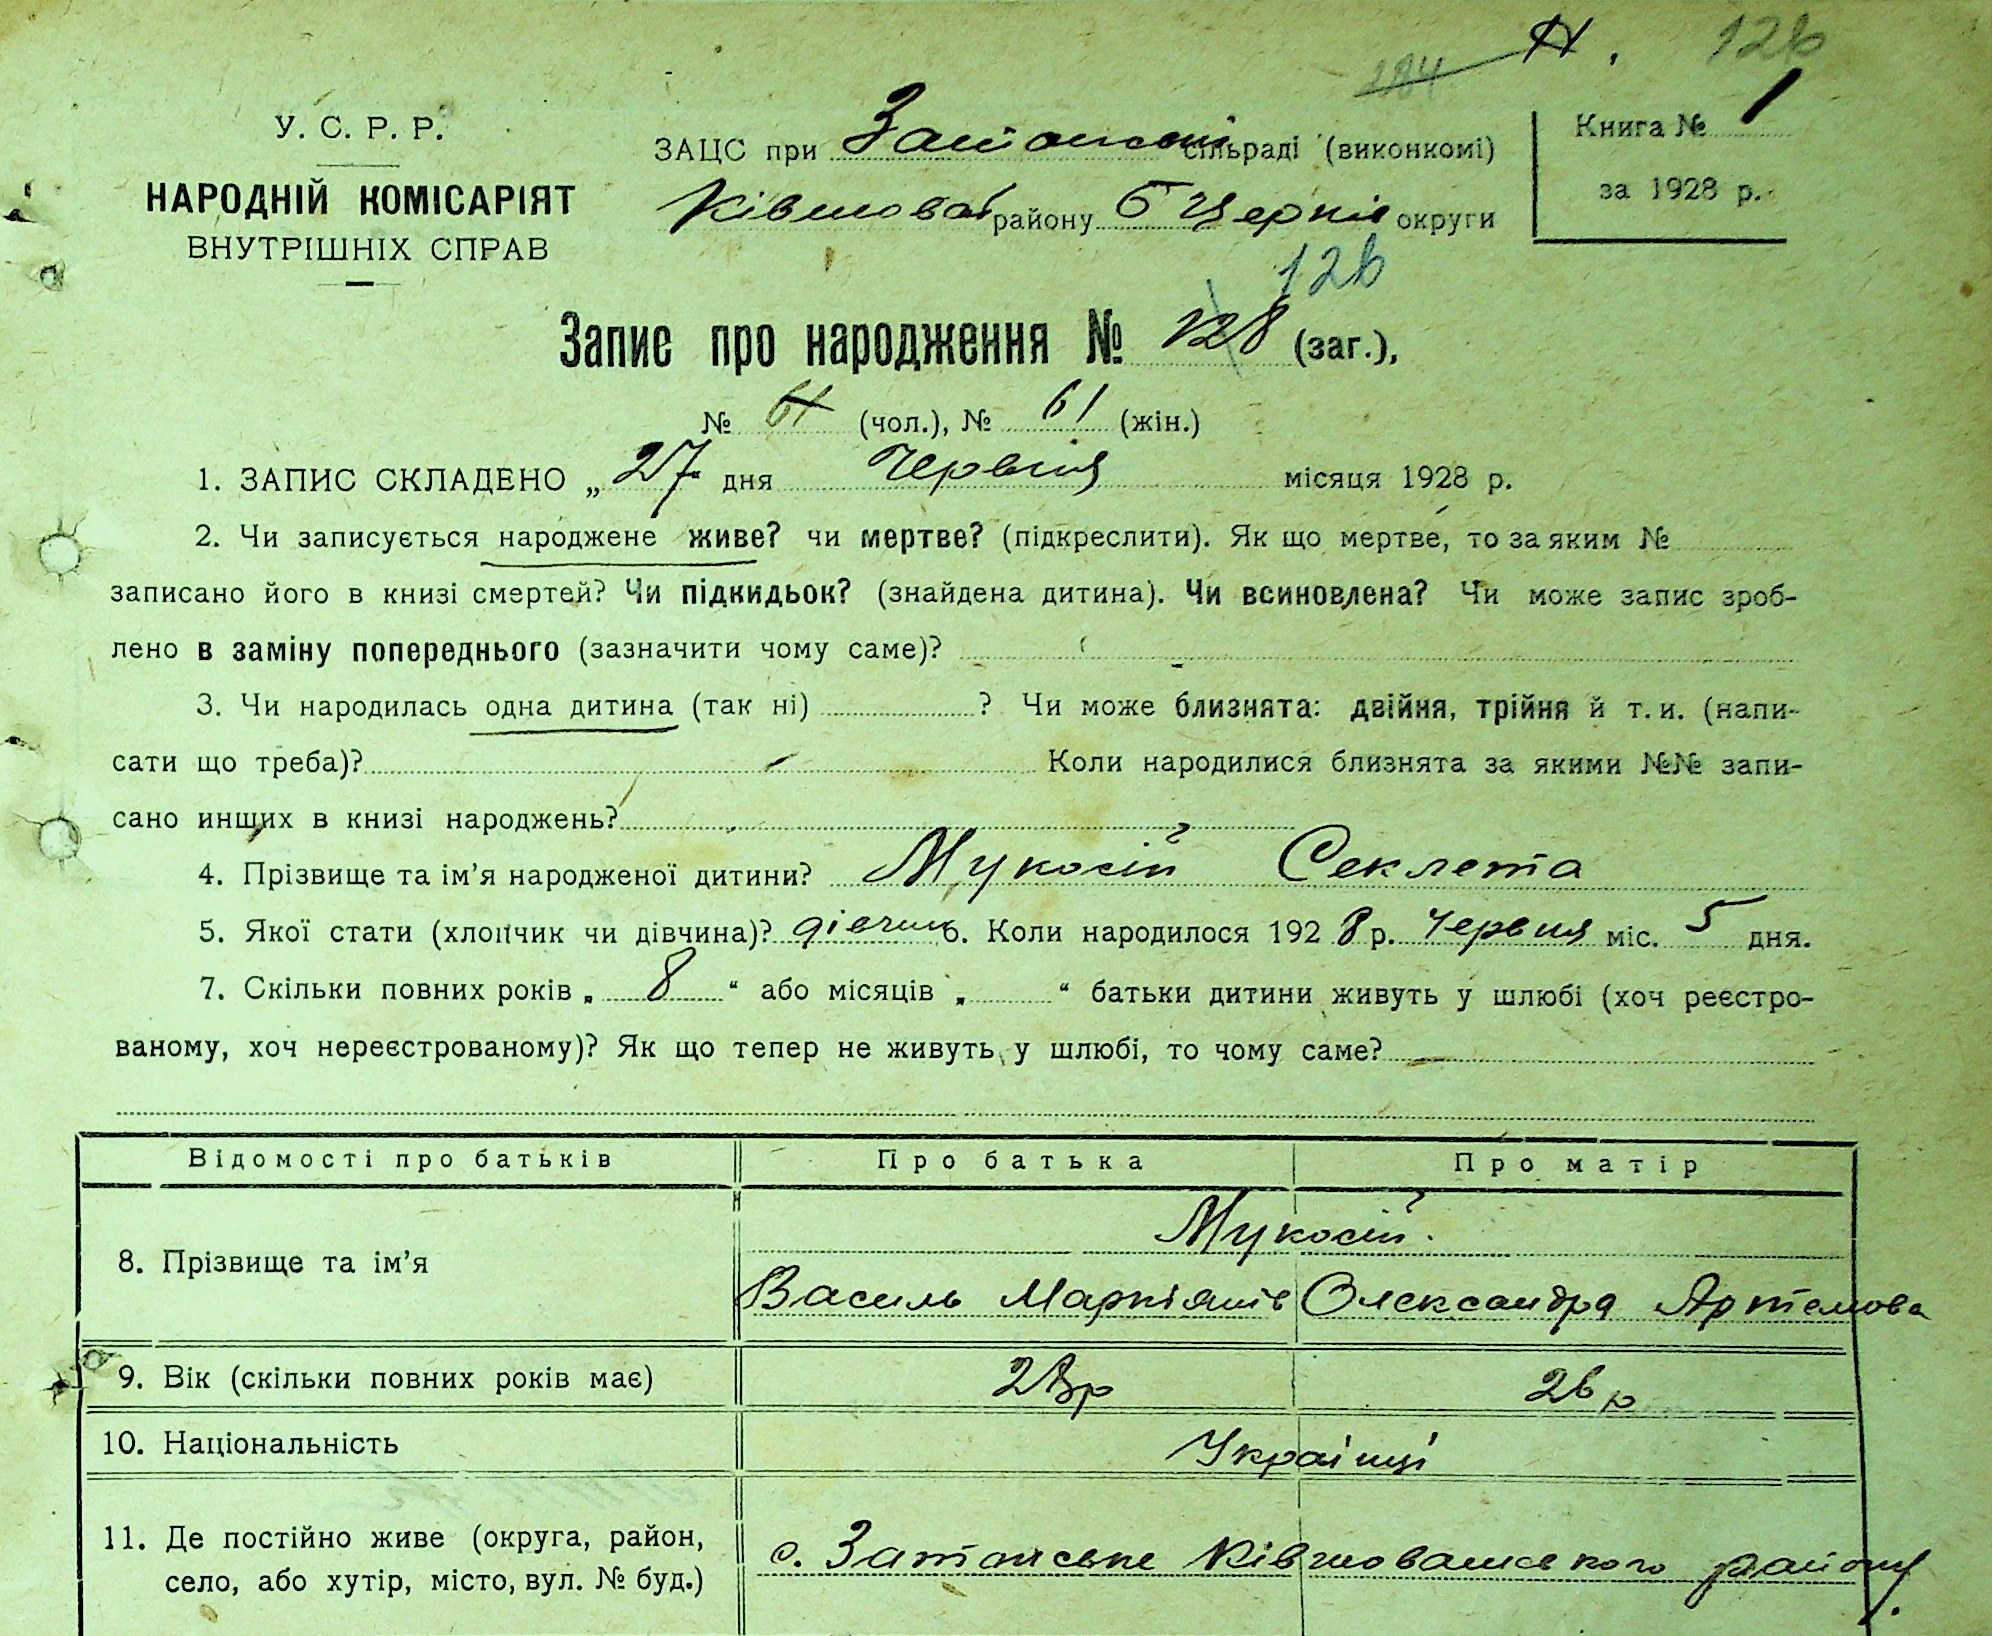 Н. 126
184
У. С. Р. Р.
НАРОДНІЙ КОМІСАРІЯТ
ВНУТРІШНІХ СПРАВ
ЗАЦС при сільраді (виконкомі)
Ківшоват району Б Церків округи
Книга № 1
за 1928 р.
126
Запис про народження № 128 (заг.),
№ 61 (чол.), № 61 (жін.)
1. ЗАПИС СКЛАДЕНО „ 27 дня Червня місяця 1928 р.
2. Чи записується народжене живе? чи мертве? (підкреслити). Як що мертве, то за яким №
записано його в книзі смертей? Чи підкидьок? (знайдена дитина). Чи всиновлена? Чи може запис зроб-
лено в заміну попереднього (зазначити чому саме)?
3. Чи народилась одна дитина (так ні) ? Чи може близнята: двійня, трійня й т. и. (напи-
сати що треба)? Коли народилися близнята за якими №№ запи-
сано инших в книзі народжень?
4. Прізвище та ім’я народженої дитини? Мукосій Секлета
5. Якої стати (хлопчик чи дівчина)? дівчин 6. Коли народилося 1928 р. Червня міс. 5 дня.
7. Скільки повних років „ 8 “ або місяців „ “ батьки дитини живуть у шлюбі (хоч реєстро-
ваному, хоч нереєстрованому)? Як що тепер не живуть у шлюбі, то чому саме?
Відомості про батьків Про батька Про матір
8. Прізвище та ім’я Мукосій.
Василь Маркіянів Олександра Артемова
9. Вік (скільки повних років має) 28 р 26 р
10. Національність Українці
11. Де постійно живе (округа, район,
село, або хутір, місто, вул. № буд.)
с. Ківшоватського району.